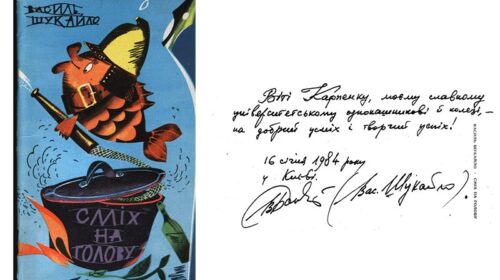 ВАСИЛЬ
ШУКАЙЛО
СМІХ
НА
ГОЛОВУ
Віті Карпенку, моєму славному
університетському однокашникові й колезі, –
на добрий усміх і творчий успіх!
16 січня 1984 року
у Києві.
(Вас. Шукайло).